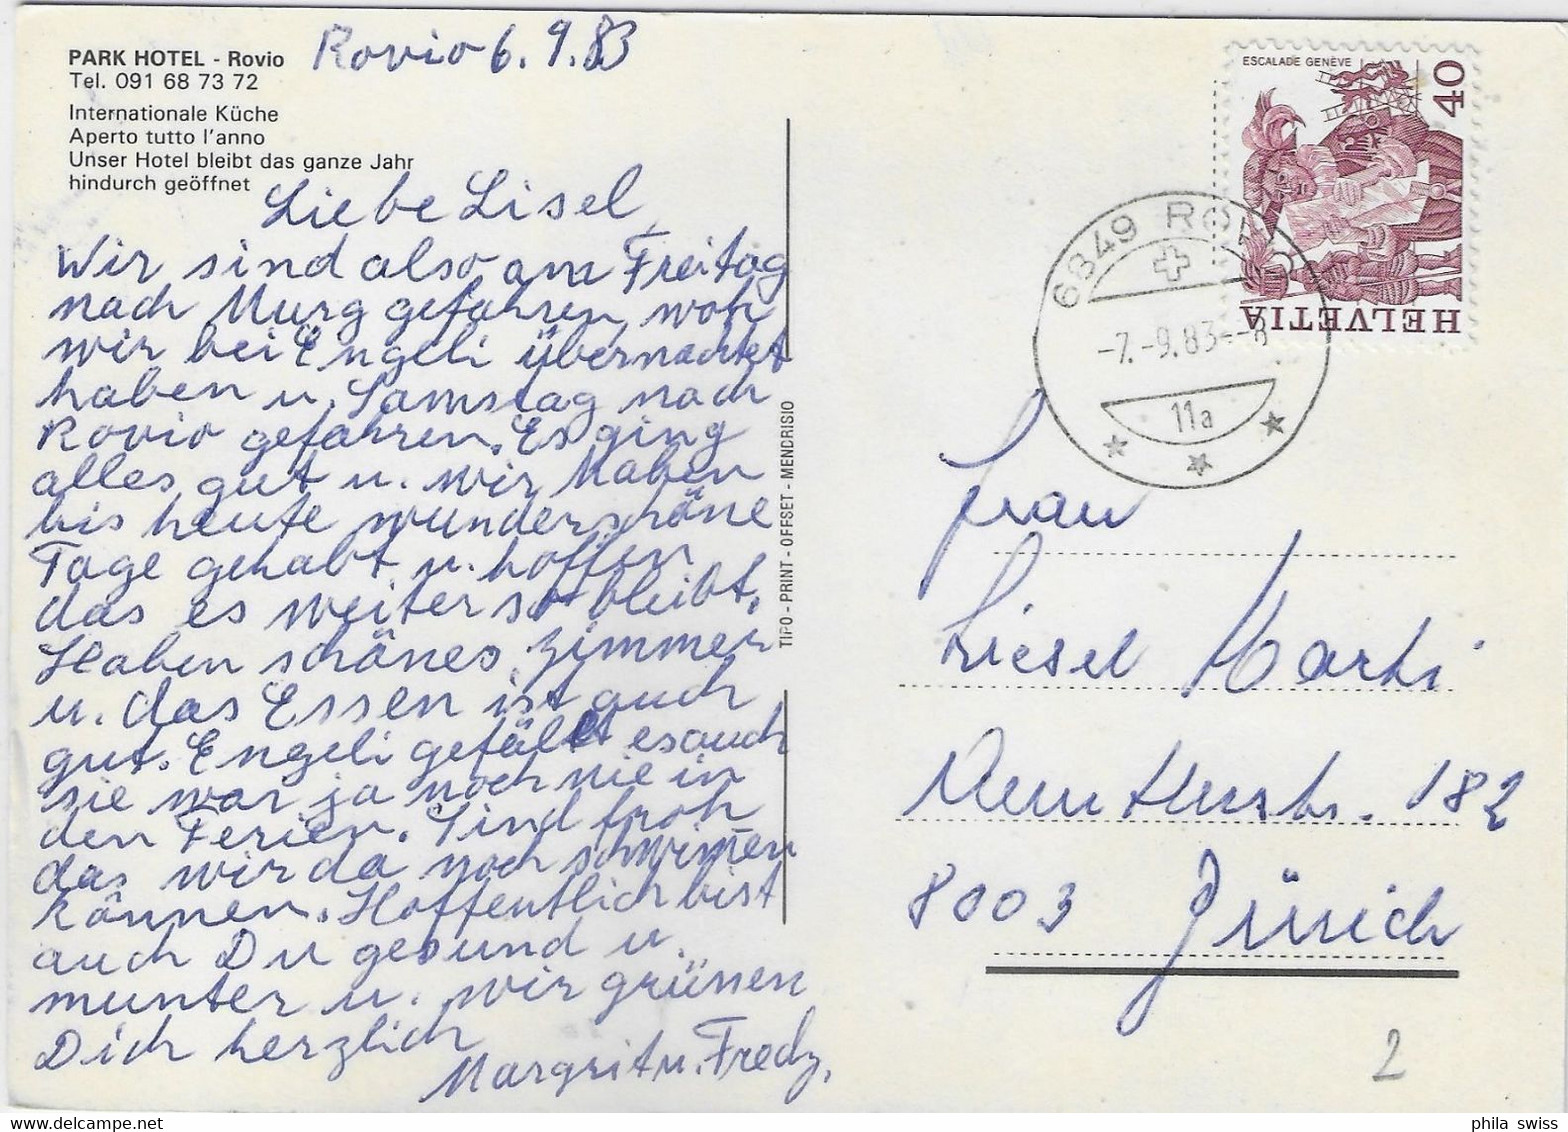 PARK HOTEL - Rovio
Tel. 091 68 73 72
Internationale Küche
Aperto tutto l'anno
Unser Hotel bleibt das ganze Jahr
hindurch geöffnet
Rovio 6. 9. 83
Liebe Lisel,
Wir sind also am Freitag
nach Murg gefahren woh
wir bei Engeli übernachtet
haben u. Samstag nach
Rovio gefahren. Es ging
alles gut u. wir haben
bis heute wunderschöne
Tage gehabt u. hoffen
das es weiter so bleibt.
Haben schönes Zimmer
u. das Essen ist auch
gut. Engeli gefällt es auch
sie war ja noch nie in
den Ferien. Sind froh
das wir da noch schwimen
können. Hoffentlich bist
auch Du gesund u.
munter u. wir grünen
Dich herzlich
Margrit u. Fredy.
TIPO - PRINT - OFFSET - MENDRISIO
ESCALADE GENÈVE
40
HELVETIA
6849
-7.-9.83--8
11a
Frau
Liesel Marti
182
8003 Zürich
2
phila swiss